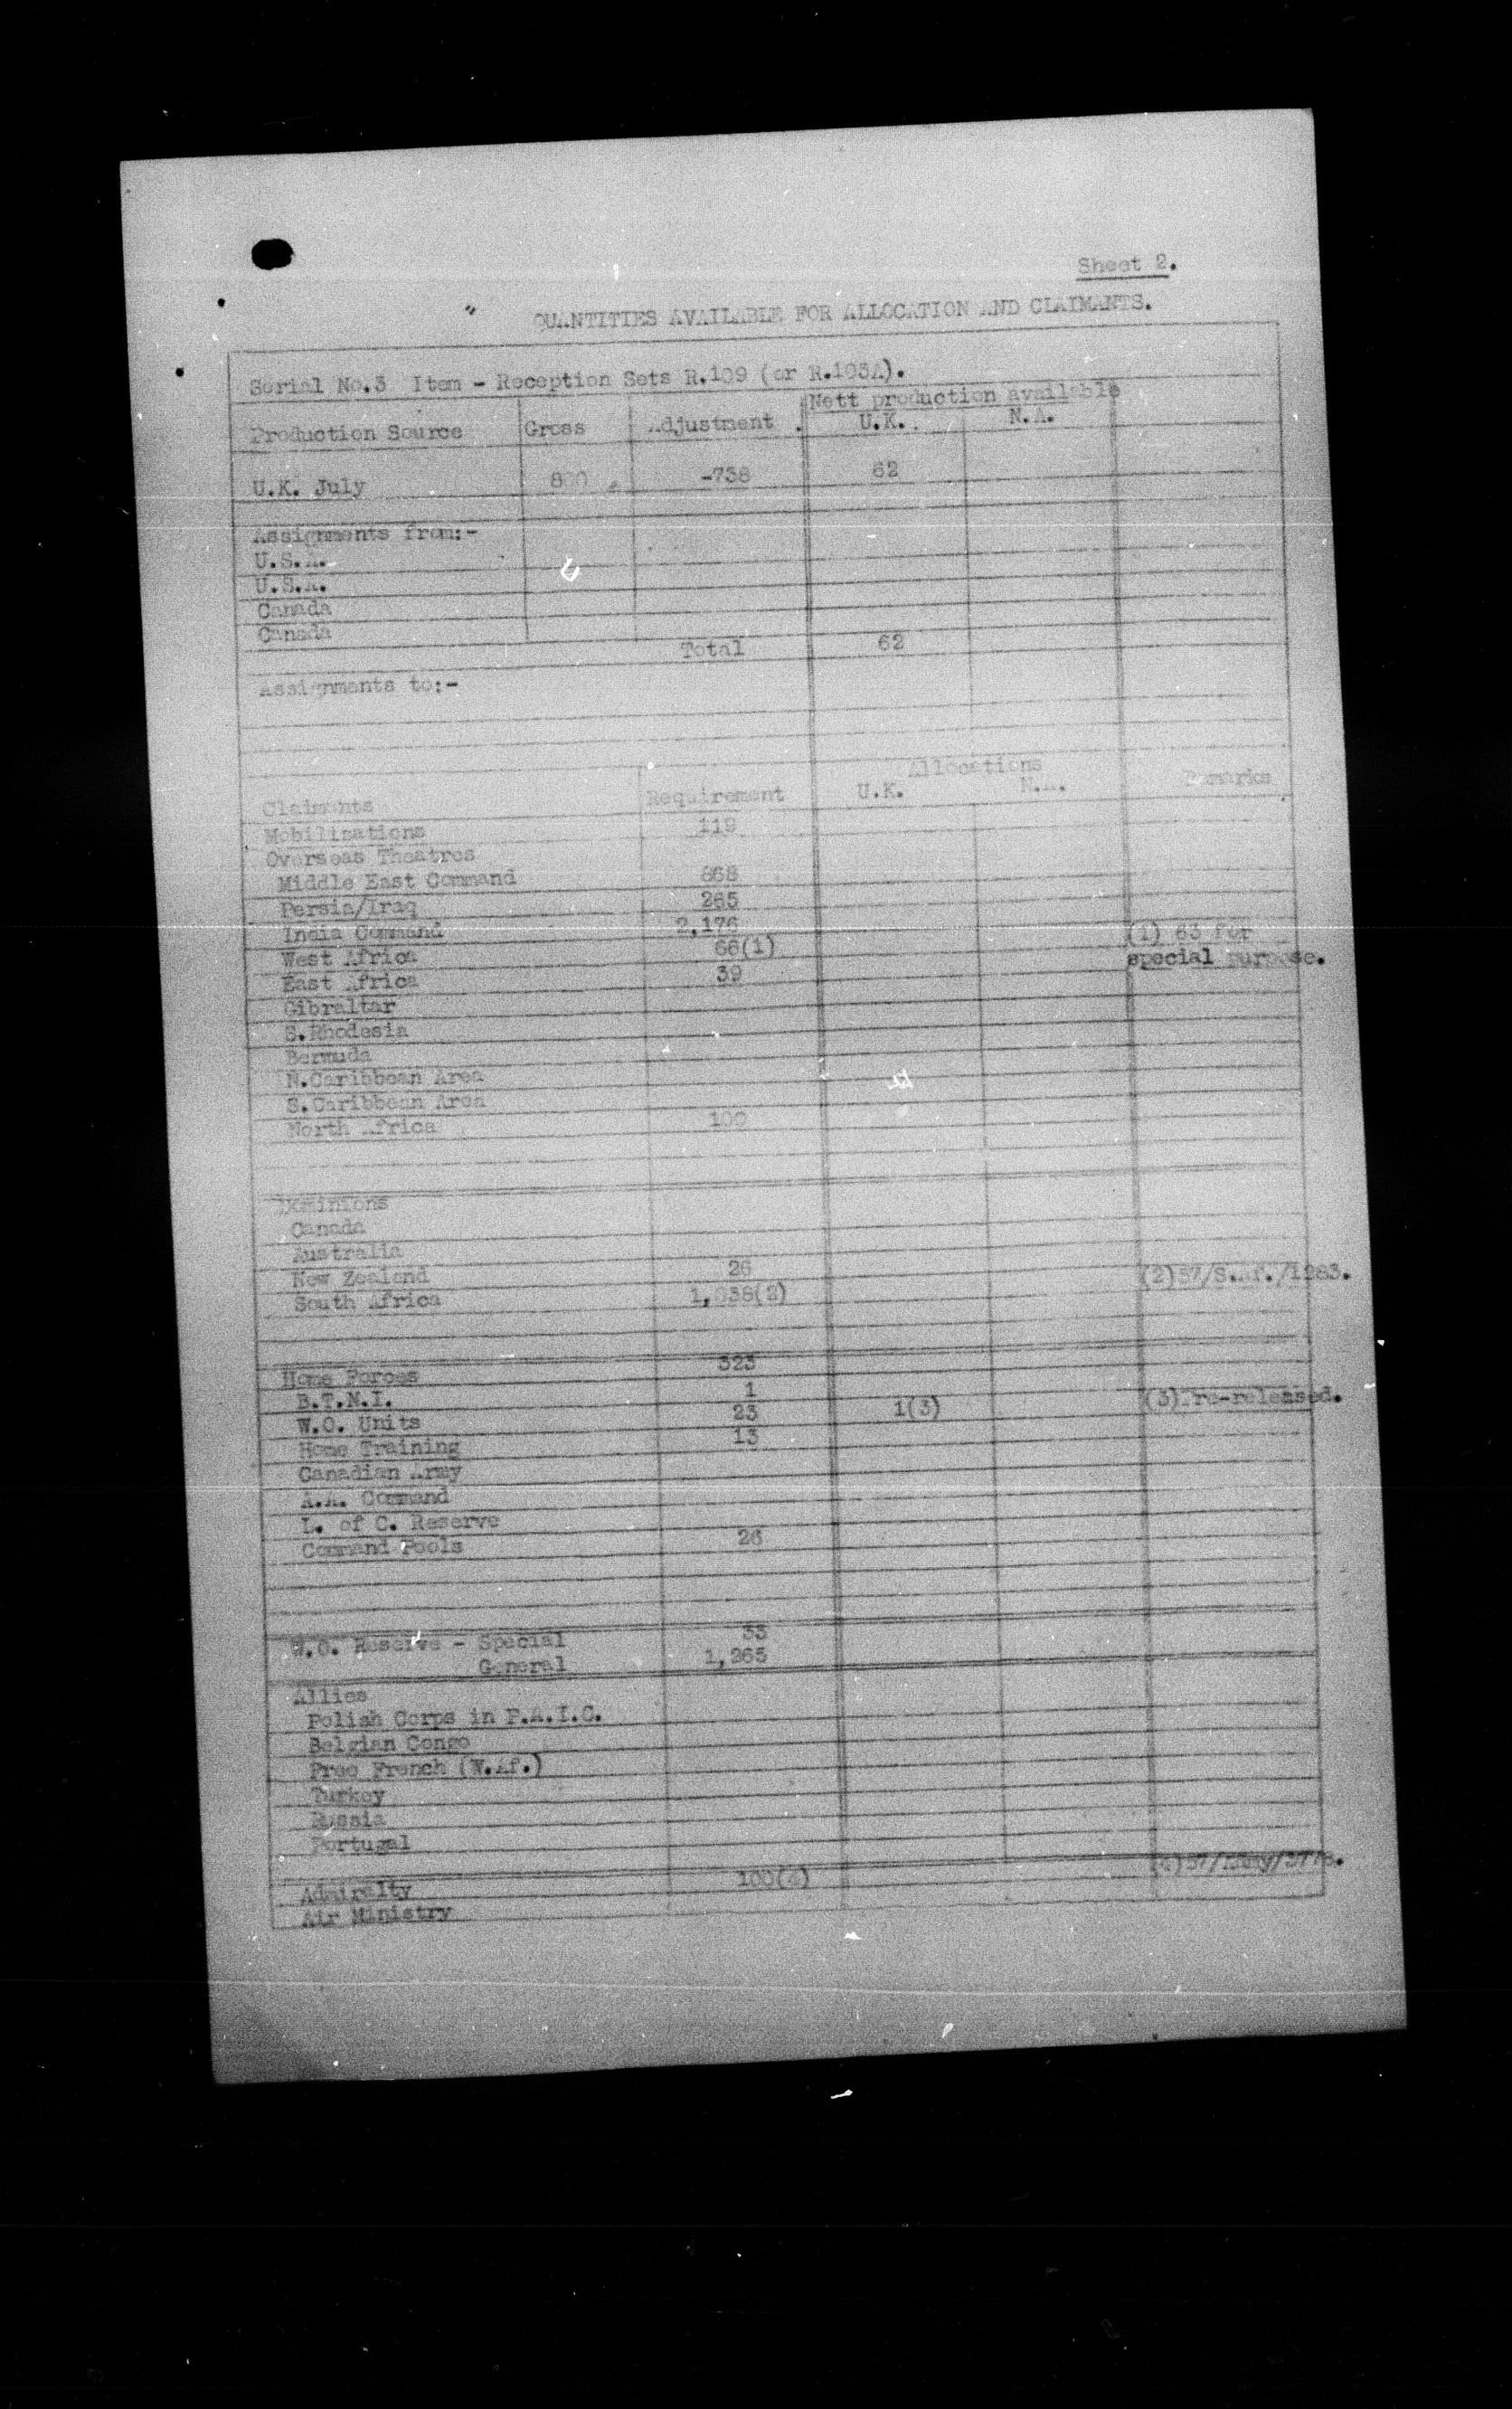 Sheet 2.
QUANTITIES AVAILABLE FOR ALLOCATION AND CLAIMANTS.
Serial No.3 Item - Reception Sets R.109 (or R.103A).
Nett production available
Production Source Gross Adjustment U.K. N.A.
U.K. July 800 -738 62
Assignments from:-
U.S.A.
U.S.A.
Canada
Canada
Total 62
Assignments to:-
Allocations
Claimants Requirement U.K. N.A. Remarks
Mobilisations 119
Overseas Theatres
Middle East Command 868
Persia/Iraq 265
India Command 2,176
West Africa 66(1) (1) 63 for
East Africa 39 special purpose.
Gibraltar
S.Rhodesia
Bermuda
N.Caribbean Area
S.Caribbean Area
North Africa 100
Dominions
Canada
Australia
New Zealand 26
South Africa 1,038(2) (2)57/S.Af./1283.
Home Forces 323
B.T.N.I. 1
W.O. Units 23 1(3) (3)Pre-released.
Home Training 13
Canadian Army
A.A. Command
L. of C. Reserve
Command Pools 26
W.O. Reserve - Special 33
General 1,265
Allies
Polish Corps in P.A.I.C.
Belgian Congo
Free French (W.Af.)
Turkey
Russia
Portugal
Admiralty 100(4)
Air Ministry